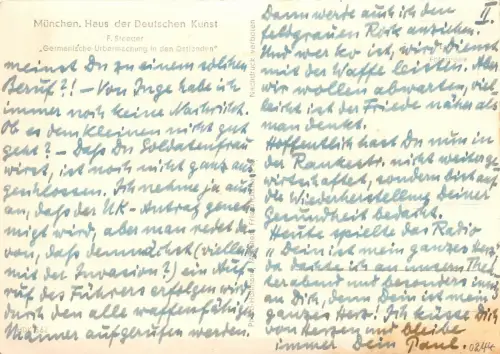 München, Haus der Deutschen Kunst
"Germanische Überraschung in den Ostlanden"
meinst Du zu einem solchen
Beruf?! – Von Inge habe ich
immer noch keine Nachricht.
Ob es dem Kleinen nicht gut
geht? – Daß Du Soldatenfrau
wirst, ist noch nicht ganz aus-
geschlossen. Ich nehme ja auch
an, daß der UK-Antrag geneh-
migt wird, aber man redet da-
von, daß demnächst (vielleicht
mit der Invasion?) ein Auf-
ruf des Führers erfolgen wird,
durch den alle waffenfähigen
Männer aufgerufen werden.
II
Dann werde auch ich den
feldgrauen Rock anziehen.
Und wer ko ist, wird Dienst
mit der Waffe leisten. Aber
wir wollen abwarten, viel-
leicht ist der Friede näher als
man denkt.
Hoffentlich hast Du nun in
der Rankestr. nicht weiterge-
wirtschaftet, sondern bist auf
die Wiederherstellung Deiner
Gesundheit bedacht.
Heute spielte das Radio
„Dein ist mein ganzes Herz",
da dachte ich an unsern Thea-
terabend und besonders innig
an Dich, denn Dein ist mein
ganzes Herz! Ich küsse Dich
von Herzen und bleibe
immer Dein Paul.
Nachdruck verboten